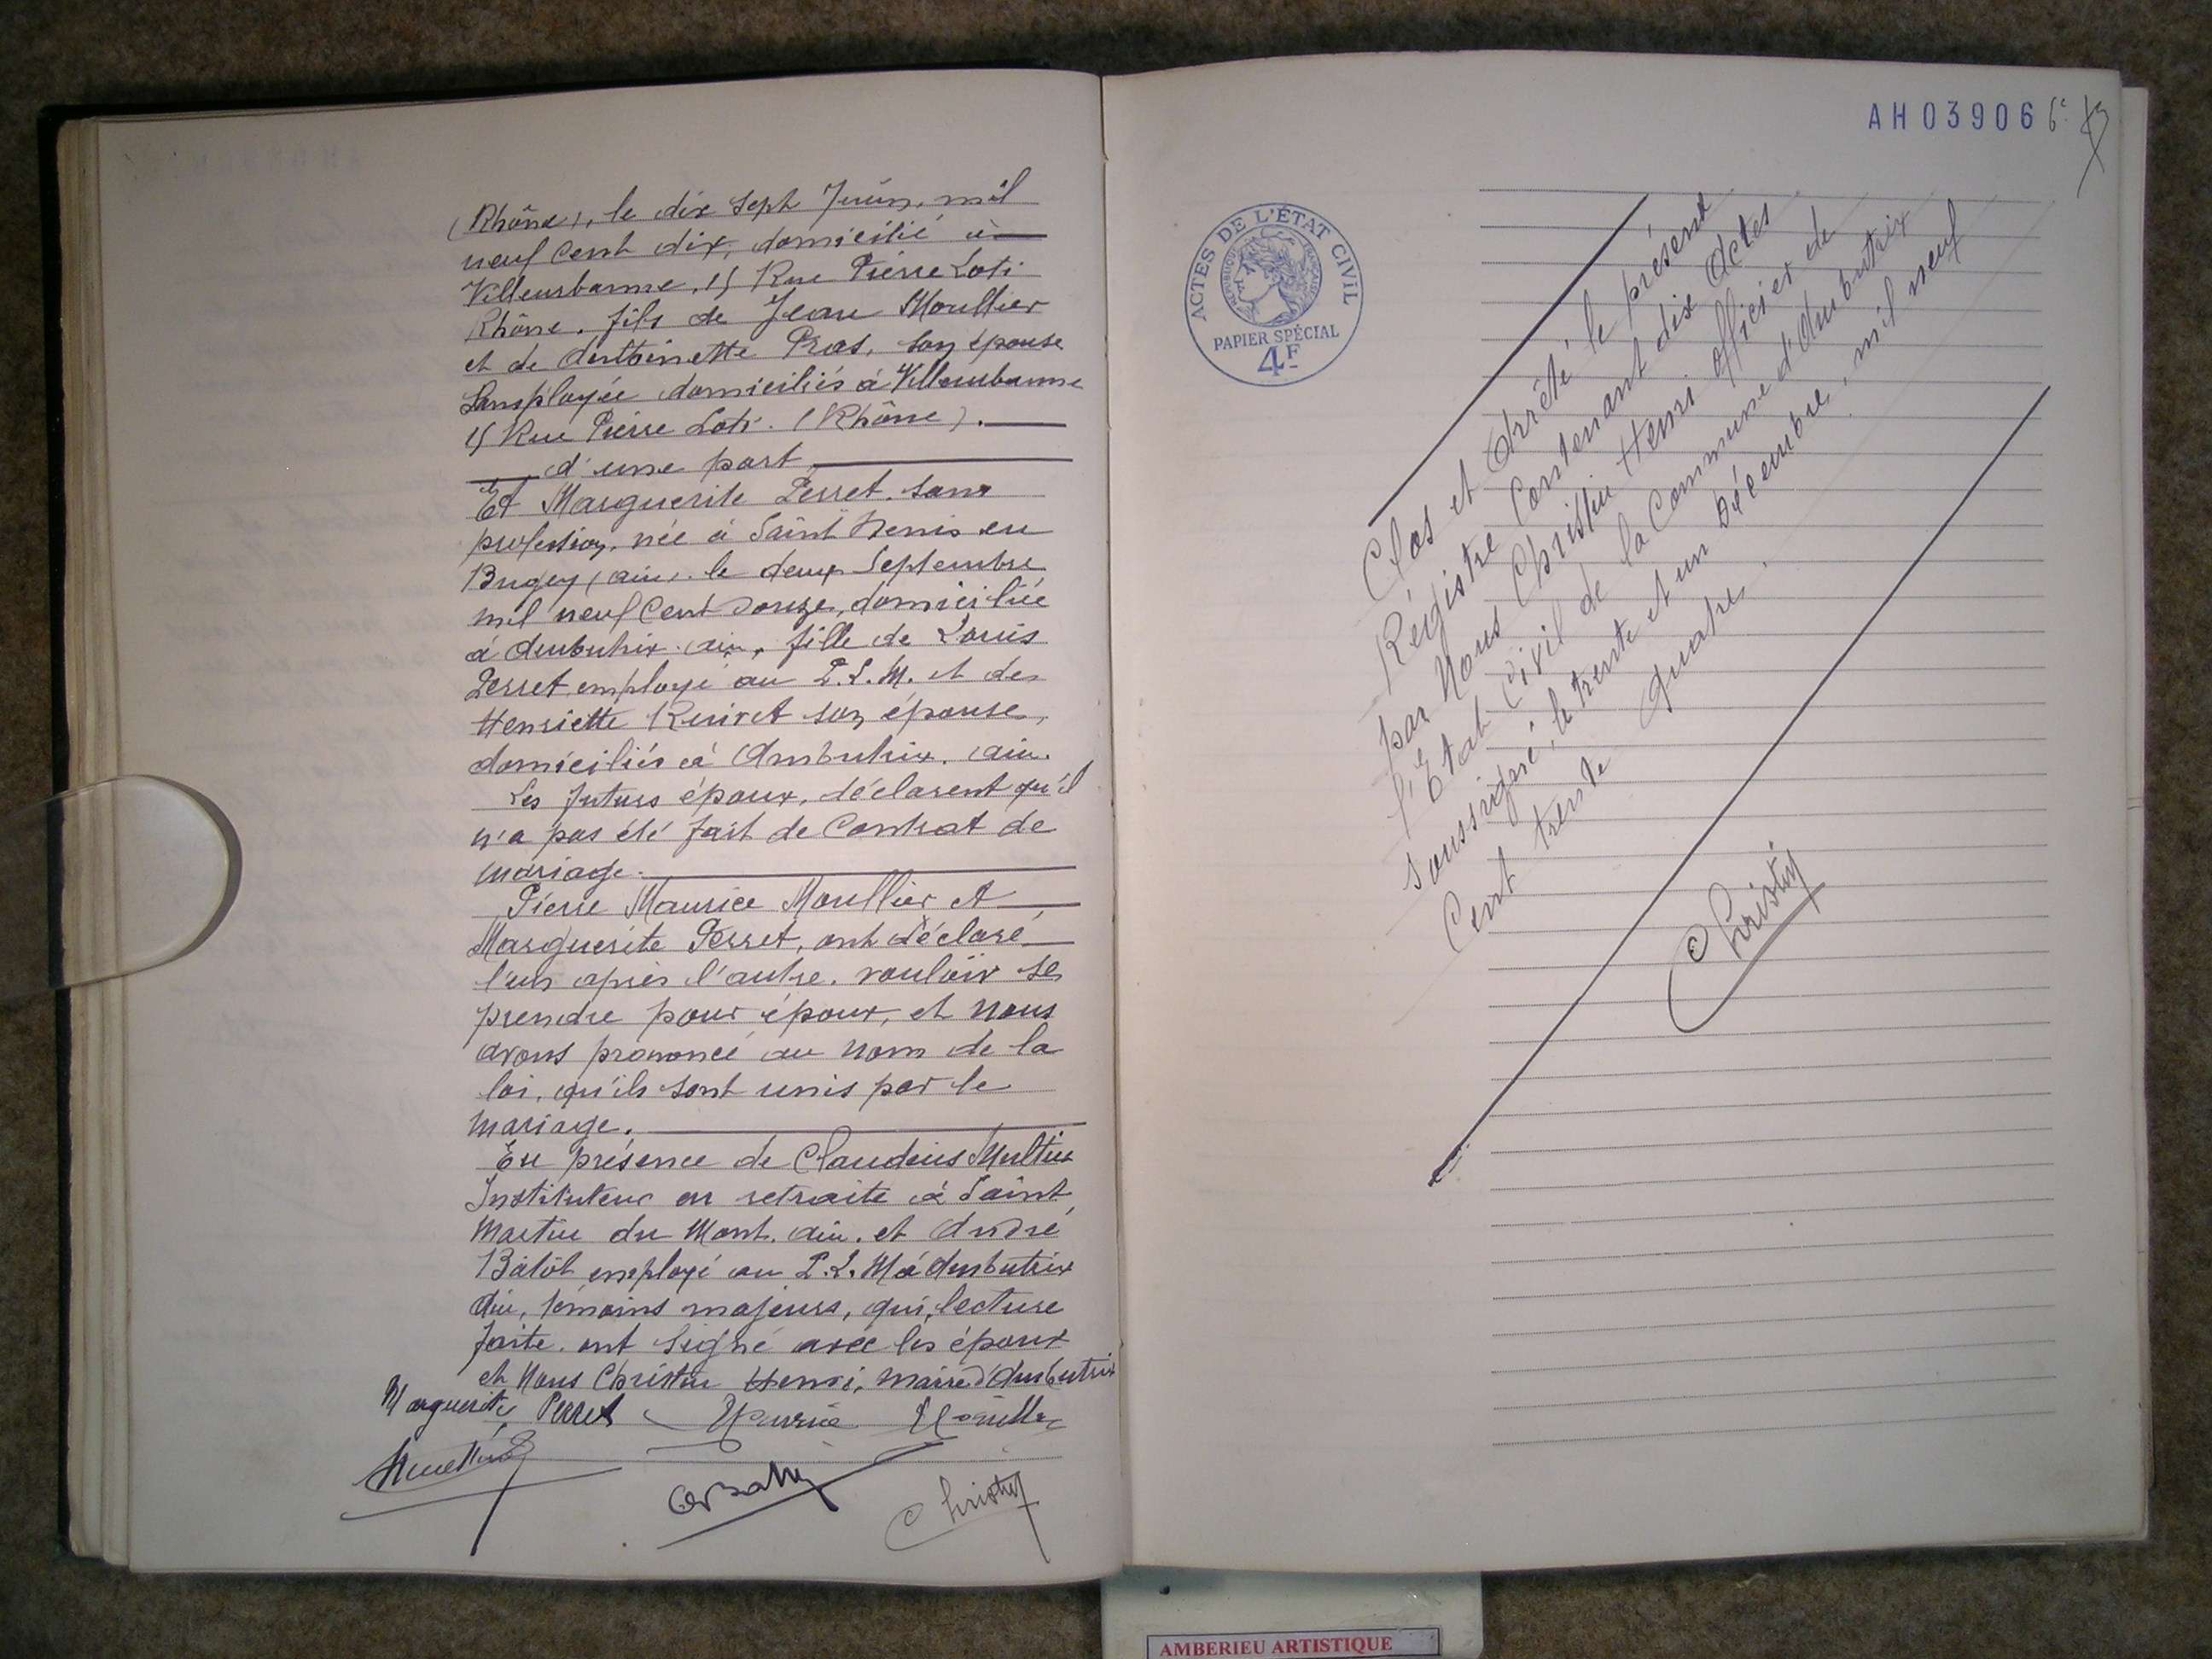 (Rhône), le dix sept Juin, mil
neuf cent dix, domicilié à
Villeurbanne, 15 Rue Pierre Loti
Rhône, fils de Jean Moullier
et de Antoinette Pras, son épouse
domiciliés à Villeurbanne
15 Rue Pierre Loti. (Rhône).
d'une part
Et Marguerite Perret, sans
profession, née à Saint Denis en
Bugey, ain, le deux Septembre
mil neuf Cent Douze, domiciliée
à Ambutrix, ain, fille de Louis
Perret employé au P.L.M. et de
Henriette son épouse,
domiciliés à Ambutrix. ain.
Les futurs époux, déclarent qu'il
n'a pas été fait de Contrat de
mariage.
Pierre Maurice Moullier et
Marguerite Perret, ont déclaré
l'un après l'autre, vouloir se
prendre pour époux, et nous
avons prononcé au nom de la
loi, qu'ils sont unis par le
mariage.
En présence de Claudius
Instituteur en retraite à Saint
Martin du Mont. ain. et André
employé au P.L.M à Ambutrix
Ain, témoins majeurs, qui, lecture
faite, ont signé avec les époux
et Nous Christin Henri, maire d'Ambutrix
Marguerite Perret Maurice Moullier
Christin
AH03906 6e
ACTES DE L'ÉTAT CIVIL
RÉPUBLIQUE FRANÇAISE
PAPIER SPÉCIAL
4F
Clos et Arrêté le présent
Régistre Contenant dix Actes
par Nous Christin Henri officier de
l'Etat Civil de la Commune d'Ambutrix
soussigné, le trente et un Décembre, mil neuf
Cent trente quatre.
Christin
AMBERIEU ARTISTIQUE